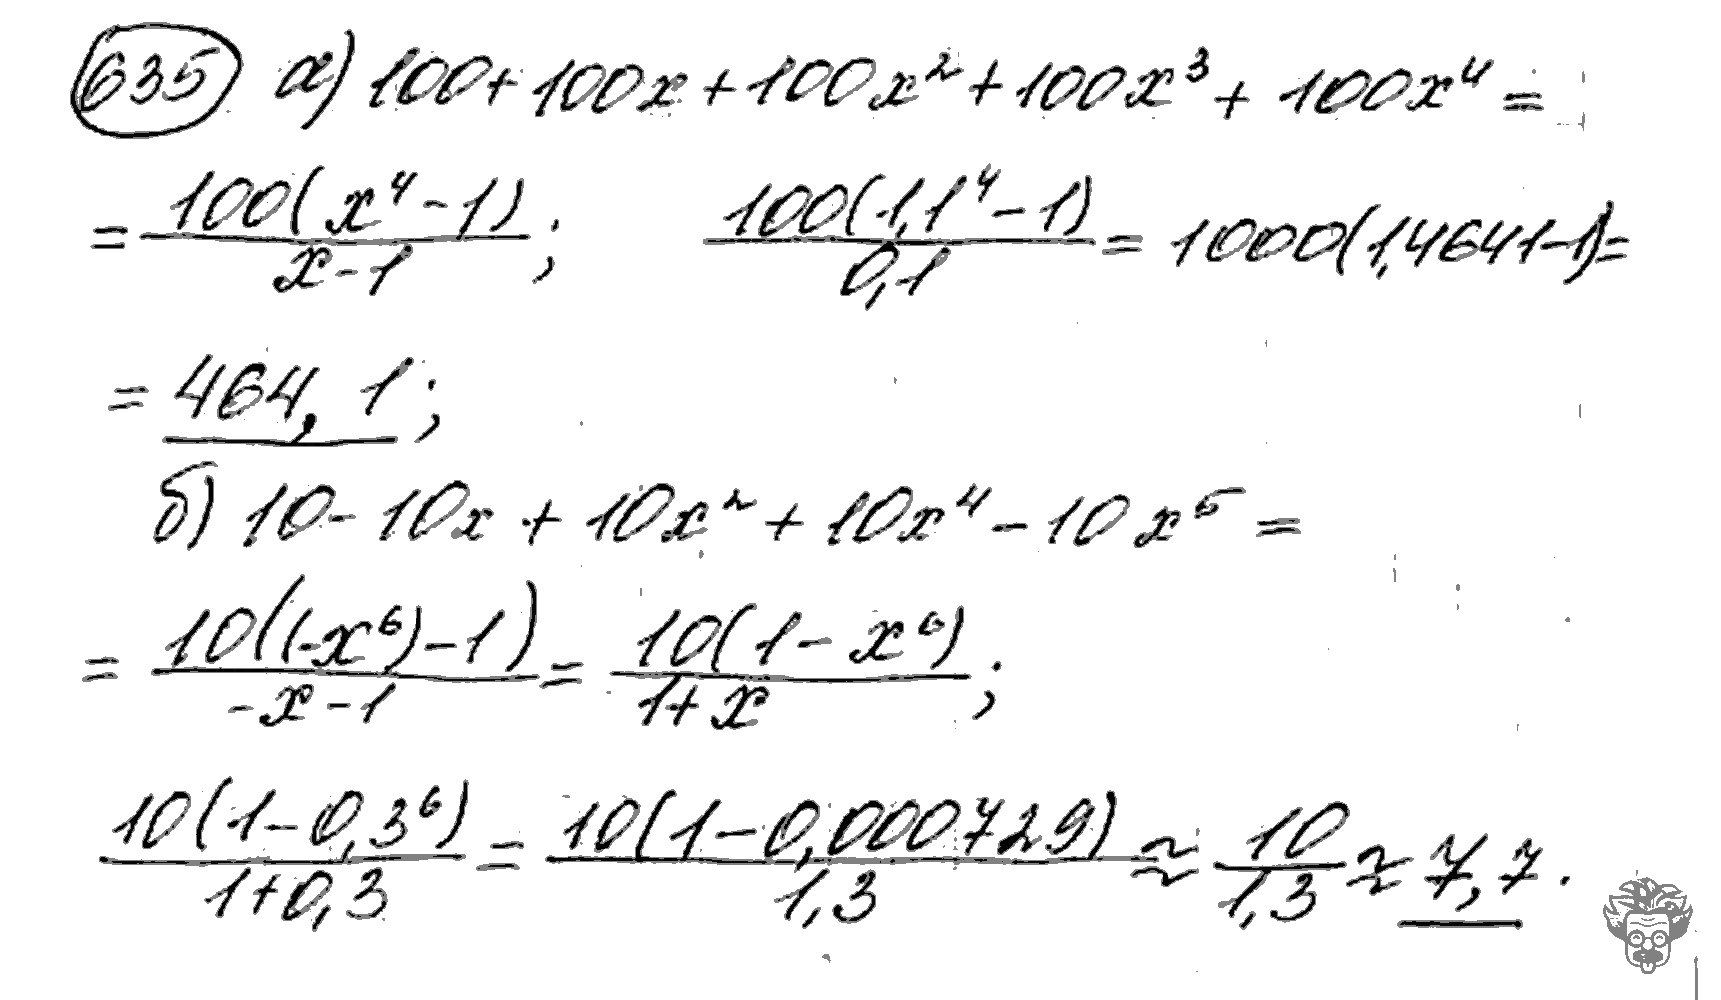 635 а) 100 + 100x + 100x² + 100x³ + 100x⁴ =
= \frac{100(x⁴ - 1)}{x - 1}; \frac{100(1,1⁴ - 1)}{0,1} = 1000(1,4641 - 1) =
= 464,1;
б) 10 - 10x + 10x² + 10x⁴ - 10x⁵ =
= \frac{10((-x⁶) - 1)}{-x - 1} = \frac{10(1 - x⁶)}{1 + x};
\frac{10(1 - 0,3⁶)}{1 + 0,3} = \frac{10(1 - 0,000729)}{1,3} ≈ \frac{10}{1,3} ≈ 7,7.